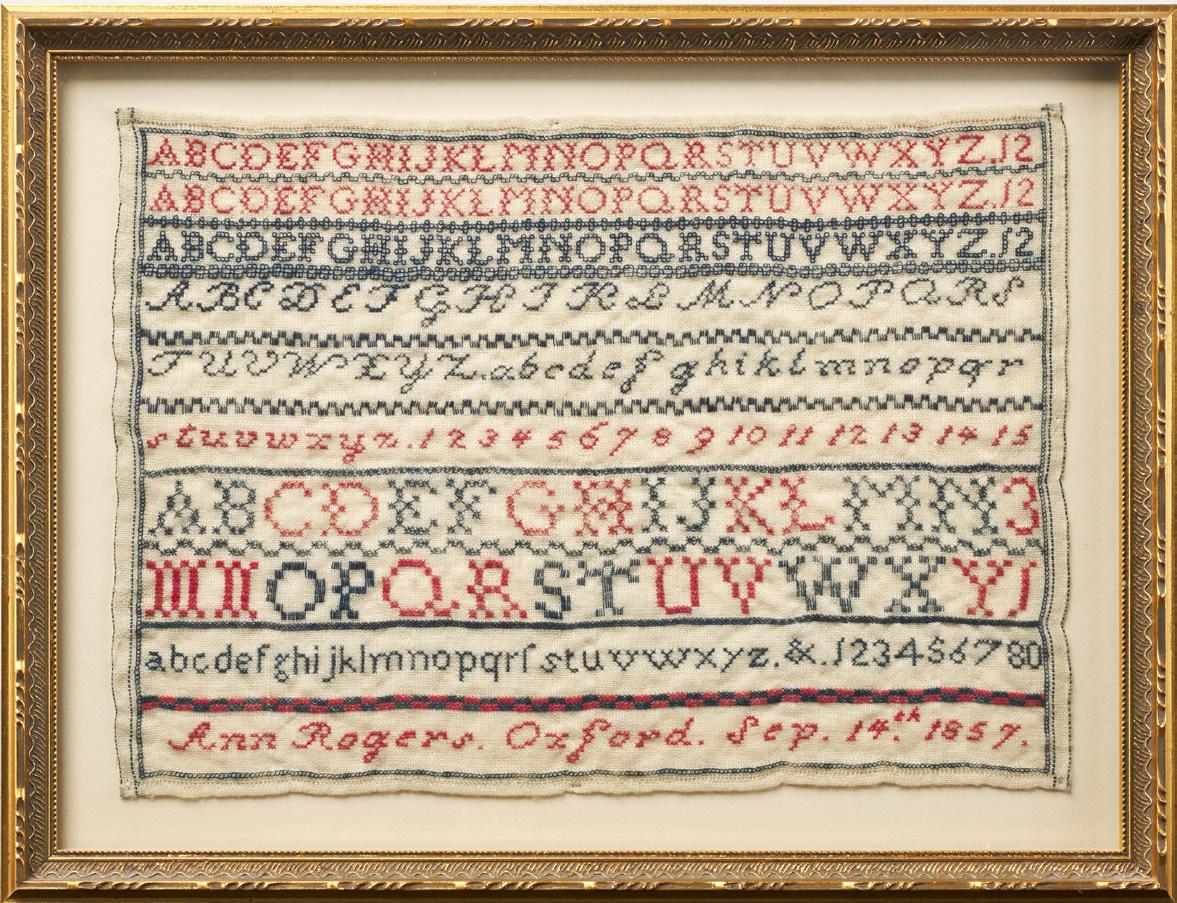 ABCDEFGHIJKLMNOPQRSTUVWXYZ.12
ABCDEFGHIJKLMNOPQRSTUVWXYZ.12
ABCDEFGHIJKLMNOPQRSTUVWXYZ.12
ABCDEFGHIKLMNOPQRS
TUVWXYZ.abcdefghiklmnopqr
stuvwxyz.1 2 3 4 5 6 7 8 9 10 11 12 13 14 15
ABCDEFGHIJKLMN3
MNOPQRSTUVWXYJ
abcdefghijklmnopqrſstuvwxyz.&.123456780
Ann Rogers. Oxford. Sep. 14th. 1857.